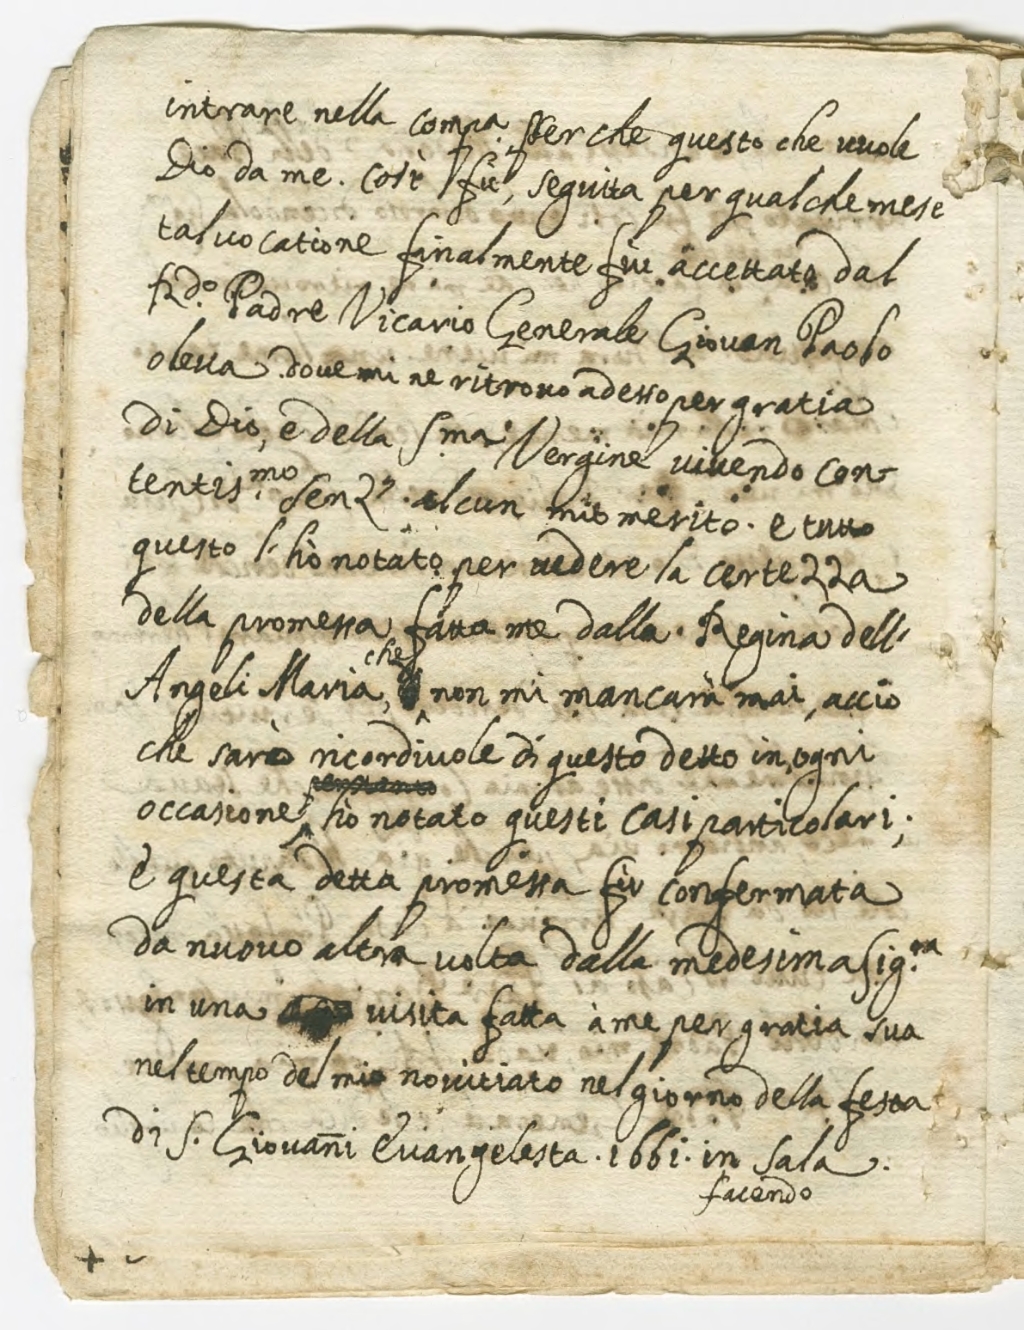 intrare nella compa. perche questo che vuole
Dio da me. così fù, seguita per qualche mese
tal vocatione finalmente fui accettato dal
Rdo. Padre Vicario Generale Giovan Paolo
oleva. dove mi ne ritrovo adesso per gratia
di Dio, e della Sma. Vergine vivendo con-
tentismo senza alcun mio merito. e tutto
questo l'hò notato per vedere la certezza
della promessa fatta me dalla. Regina dell'
Angeli Maria, che non mi mancarà mai, acciò
che sarò ricordivole di questo detto in, ogni
occasione, hò notato questi casi particolari;
e questa detta promessa fù confermata
da nuovo altra volta dalla medesima Sig.ra
in una visita fatta à me per gratia sua
nel tempo del mio novitiato nel giorno della festa
di S. Giovañi Evangelesta. 1661. in sala.
facendo